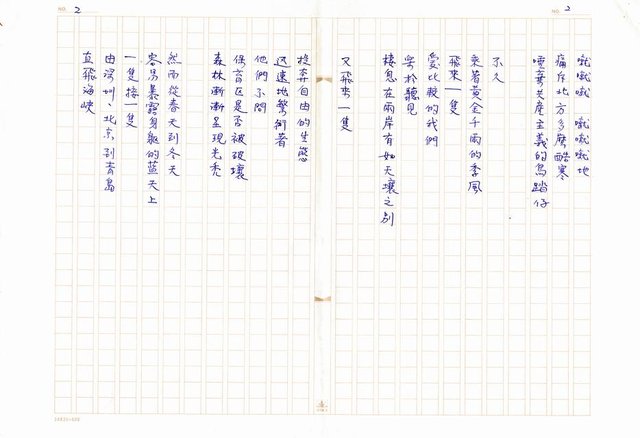 NO. 2
啾啾啾 啾啾啾地
痛斥北方多麼酷寒
唾棄共產主義的鳥踏仔
不久
乘著黃金千兩的季風
飛來一隻
愛比較的我們
樂於聽見
棲息在兩岸有如天壤之別
又飛來一隻
NO. 2
拋棄自由的生態
迅速地繁衍著
他們不問
保育區是否被破壞
森林漸漸呈現光禿
然而從春天到冬天
容易暴露身軀的蓝天上
一隻接一隻
由深圳、北京到青島
直飛海峽